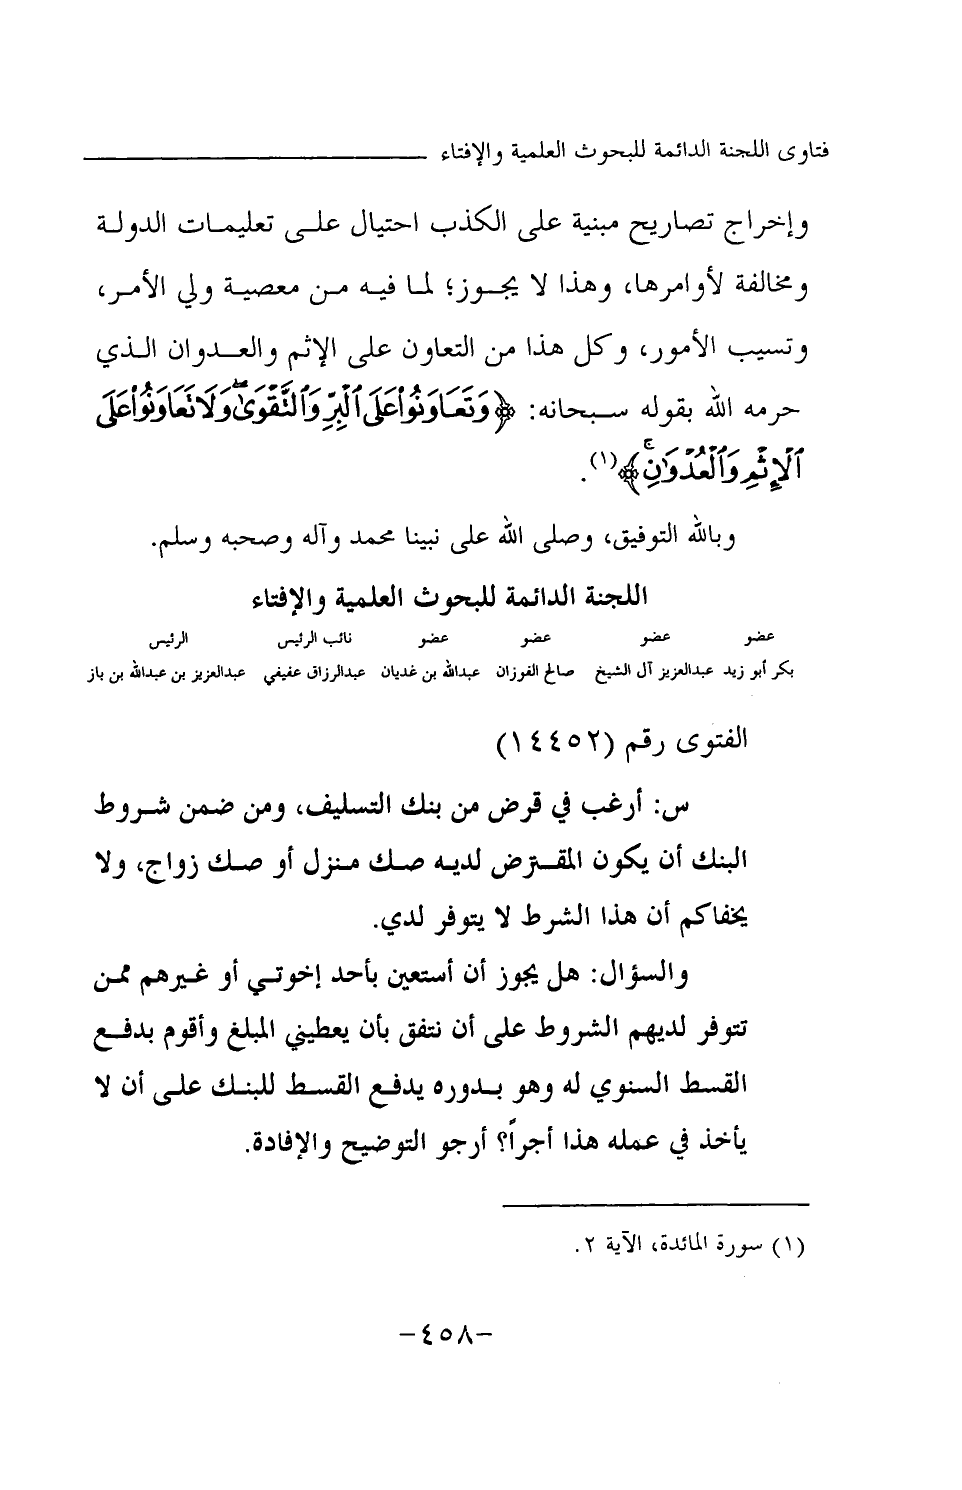 فتاوى اللجنة الدائمة للبحوث العلمية والإفتاء
وإخراج تصاريح مبنية على الكذب احتيال على تعليمات الدولة
ومخالفة لأوامرها، وهذا لا يجوز؛ لما فيه من معصية ولي الأمر،
وتسيب الأمور، وكل هذا من التعاون على الإثم والعدوان الذي
حرمه الله بقوله سبحانه: ﴿وَتَعَاوَنُوا۟ عَلَى ٱلْبِرِّ وَٱلتَّقْوَىٰ ۖ وَلَا تَعَاوَنُوا۟ عَلَى
ٱلْإِثْمِ وَٱلْعُدْوَٰنِ ۚ﴾(١).
وبالله التوفيق، وصلى الله على نبينا محمد وآله وصحبه وسلم.
اللجنة الدائمة للبحوث العلمية والإفتاء
عضو عضو عضو عضو نائب الرئيس الرئيس
بكر أبو زيد عبدالعزيز آل الشيخ صالح الفوزان عبدالله بن غديان عبدالرزاق عفيفي عبدالعزيز بن عبدالله بن باز
الفتوى رقم (١٤٤٥٢)
س: أرغب في قرض من بنك التسليف، ومن ضمن شروط
البنك أن يكون المقترض لديه صك منزل أو صك زواج، ولا
يخفاكم أن هذا الشرط لا يتوفر لدي.
والسؤال: هل يجوز أن أستعين بأحد إخوتي أو غيرهم ممن
تتوفر لديهم الشروط على أن نتفق بأن يعطيني المبلغ وأقوم بدفع
القسط السنوي له وهو بدوره يدفع القسط للبنك على أن لا
يأخذ في عمله هذا أجراً؟ أرجو التوضيح والإفادة.
(١) سورة المائدة، الآية ٢.
-٤٥٨-